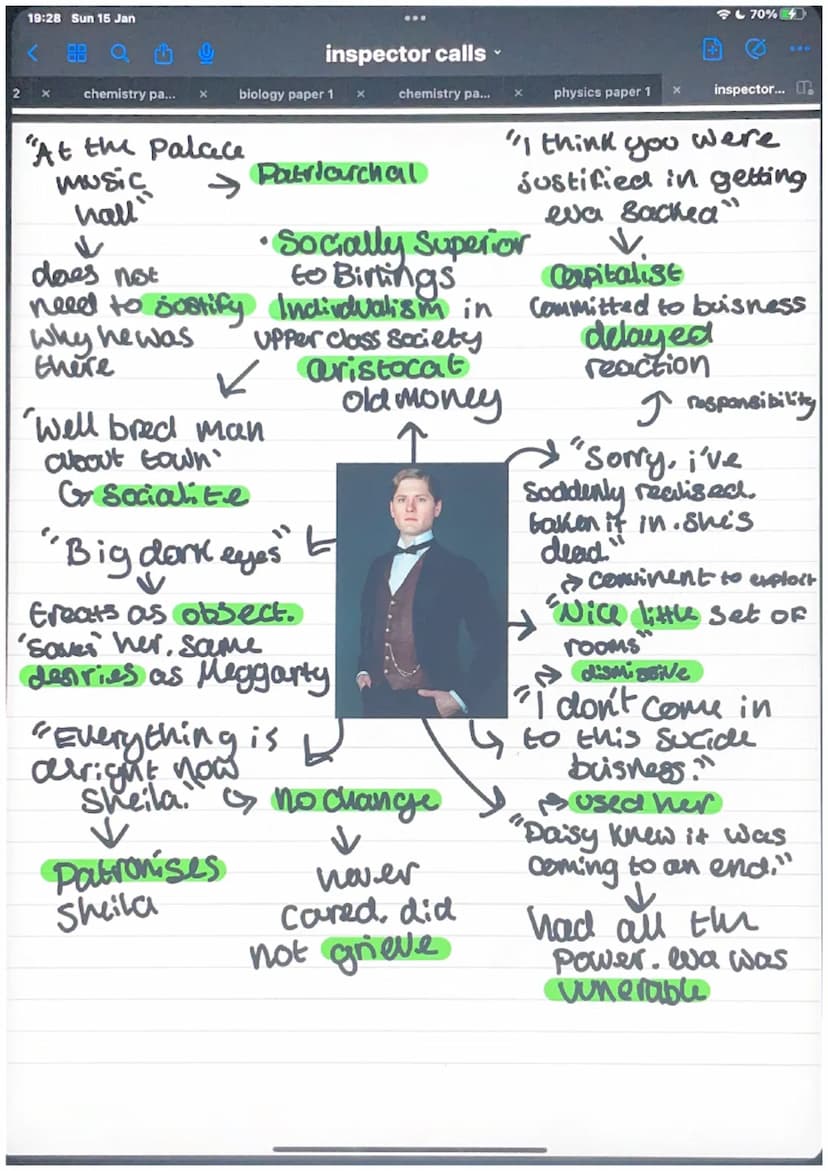 19:28 Sun 15 Jan
70%
inspector calls
2
chemistry pa...
biology paper 1
chemistry pa...
physics paper 1
inspector...
"At the Palace
music
hall"
→ Patriarchal
↓
does not
need to justify
why he was
there
• Socially Superior
to Birlings
Individualism in
upper class society
aristocat
old money
"I think you were
justified in getting
eva sacked"
↓
Capitalist
committed to buisness
delayed
reaction
responsibility
"Well bred man
about town"
↳ Socialite
"Sorry, i've
suddenly realised.
taken it in. she's
dead."
→ convinent to exploit
"Big dark eyes"
↓
treats as object.
'saves' her. same
desries as Meggarty
"Nice little set of
rooms"
→ dismissive
"I don't come in
to this sucide
buisness."
→ used her
"Everything is
alright now
Sheila."
↓
Patronises
Sheila
→ no change
↓
never
cared. did
not grieve
"Daisy knew it was
coming to an end."
↓
had all the
power. eva was
vunerable